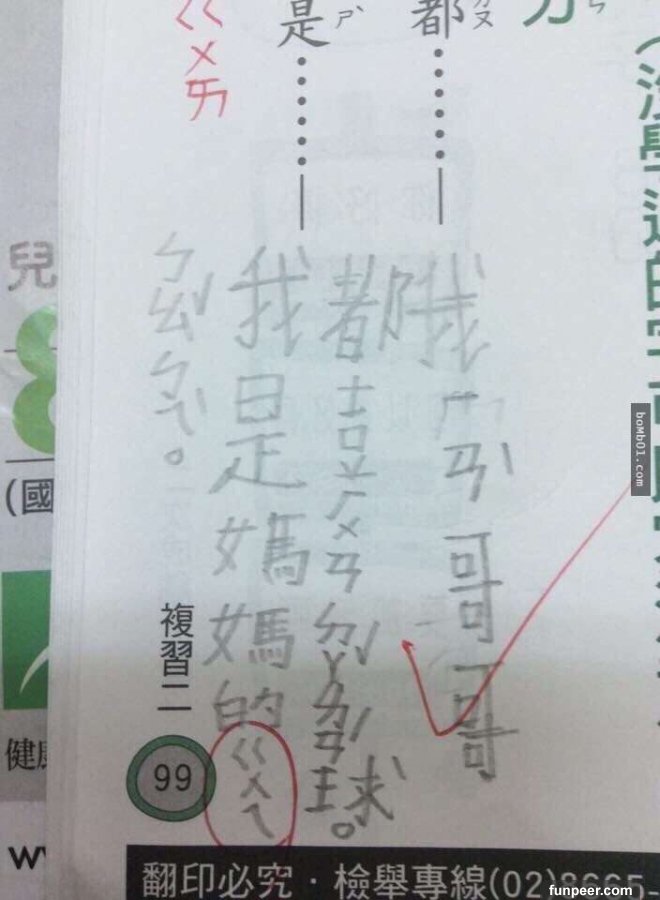 (沒學過的字可
都ㄉㄡ⋯⋯──
是ㄕˋ⋯⋯──
ㄍㄨㄞ
我ㄏㄢˋ哥哥
都喜ㄏㄨㄢㄉㄚˇㄌㄢˊ球。
我是媽媽的ㄍㄨㄟ
ㄅㄠˇㄅㄟˋ。
複習二
99
兒
8
(國
健康
w
翻印必究・檢舉專線(02)8665-
bomb01.com
funpeer.com